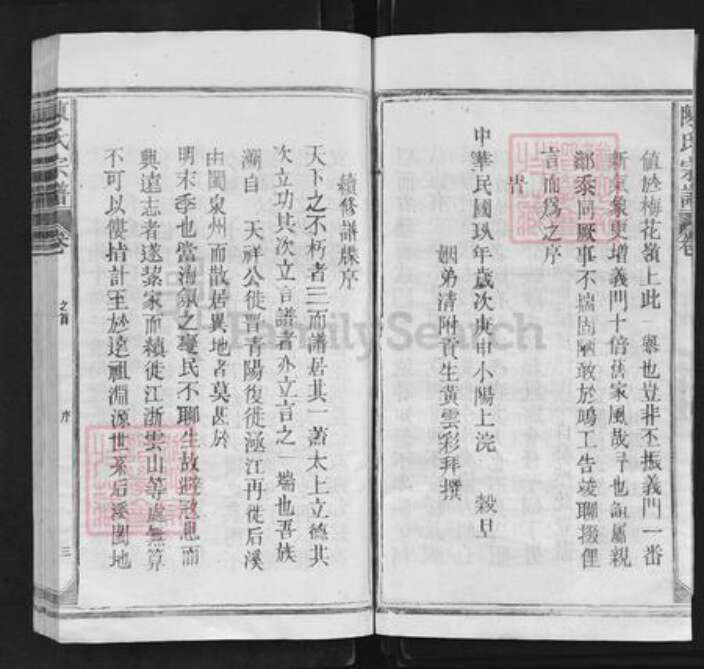 陳氏宗譜 卷
值於梅花嶺上此 舉也豈非丕振義門一番
新氣象更增義門十倍舊家風哉予也誼屬親
鄰忝同厥事不揣固陋敢於鳩工告竣聯掇俚
言而爲之序
旹
中華民國玖年歲次庚申小陽上浣 榖旦
姻弟清附貢生黃雲彩拜撰
續修譜牒序
天下之不朽者三而譜居其一蓋太上立德其
次立功其次立言譜者亦立言之一端也吾族
溯自 天祥公徙晋青陽復徙 江再徙后溪
由閩泉州而散居異地者莫甚於
明末季也當海氛之擾民不聊生故避 患而
興遠志者遂挈家而轉徙江浙雲山等處無算
不可以僂指計至於遠祖淵源世系后溪閩地
陳氏宗譜 卷
之首
序
三
FamilySearch